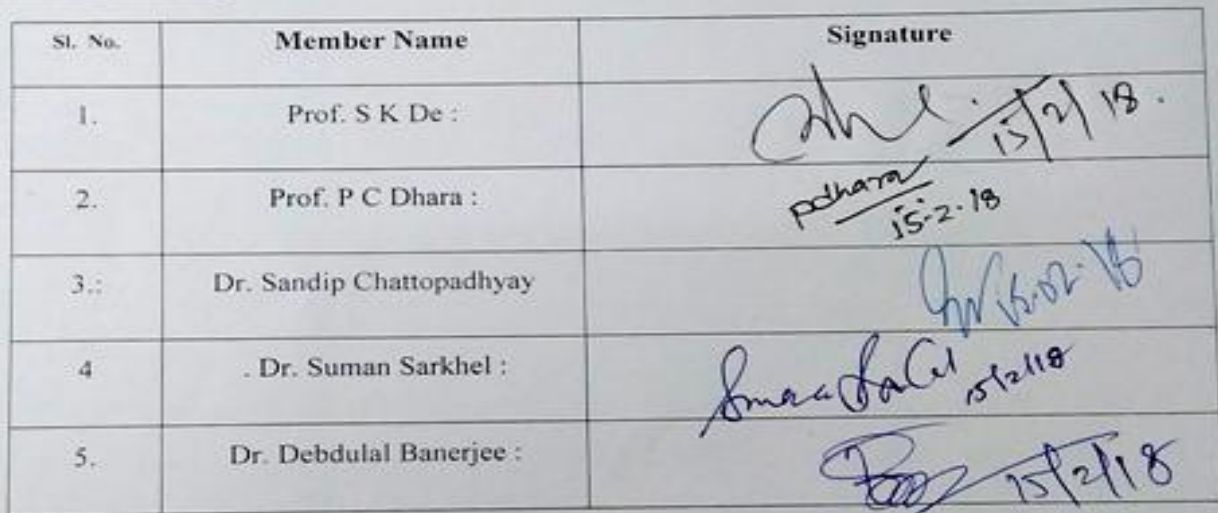 Sl. No. Member Name Signature
1. Prof. S K De : 15/2/18.
2. Prof. P C Dhara : pdhara
15-2-18
3.: Dr. Sandip Chattopadhyay 15-02-18
4 . Dr. Suman Sarkhel : 15/2/18
5. Dr. Debdulal Banerjee : 15/2/18